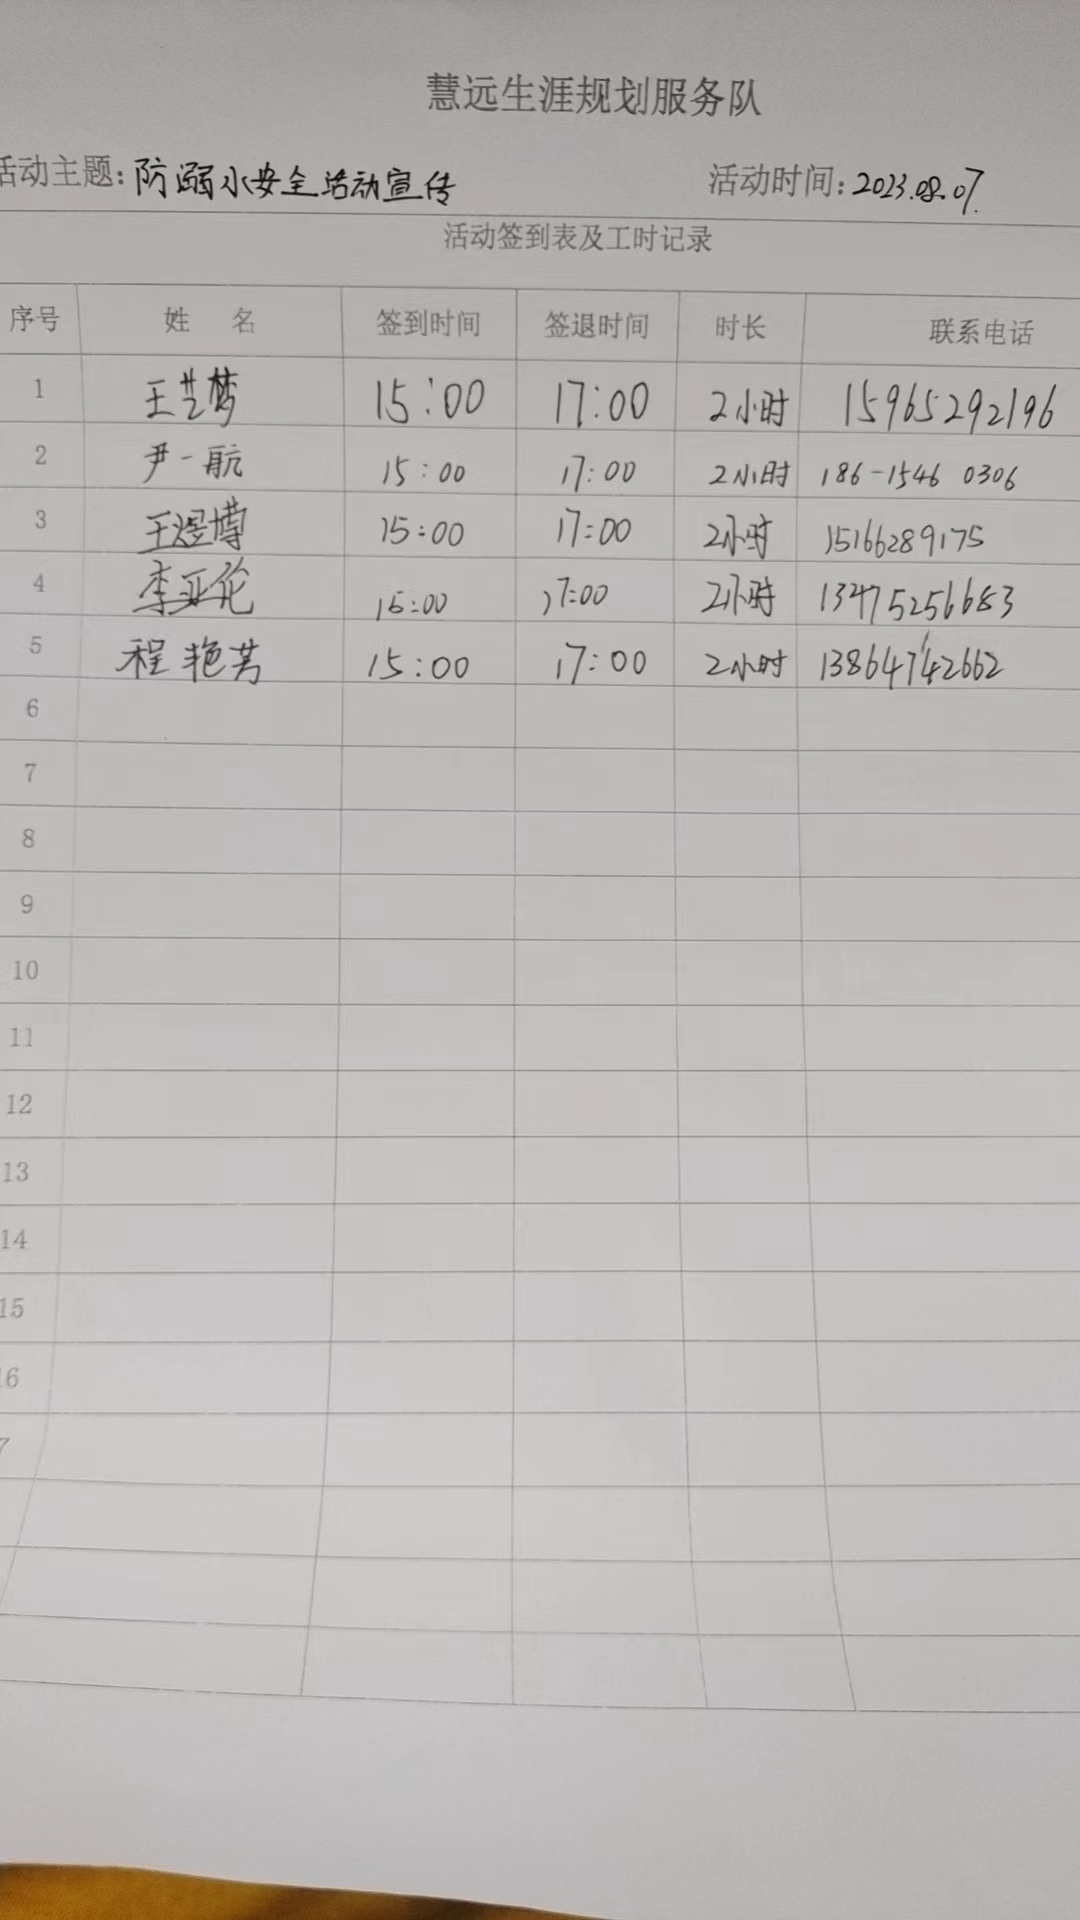 慧远生涯规划服务队
活动主题:防溺水安全活动宣传 活动时间:2023.08.07.
活动签到表及工时记录
序号 姓 名 签到时间 签退时间 时长 联系电话
1 王艺梦 15:00 17:00 2小时 15965292196
2 尹一航 15:00 17:00 2小时 186-1546 0306
3 王煜博 15:00 17:00 2小时 15166289175
4 李亚伦 15:00 17:00 2小时 13475256683
5 程艳芳 15:00 17:00 2小时 13864742662
6
7
8
9
10
11
12
13
14
15
16
7